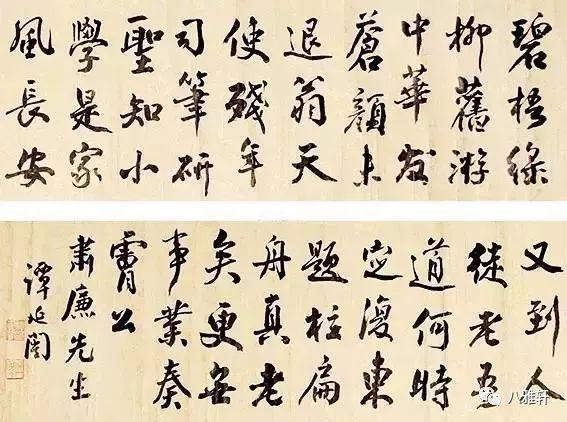 碧梧綠
柳舊游
中華髮
蒼顏未
退翁天
使殘年
司筆研
聖知小
學是家
風長安
又到人
徒老吾
道何時
定復東
題柱扁
舟真老
矣更無
事業奏
膚公
肅廉先生
譚延闓
八雅轩